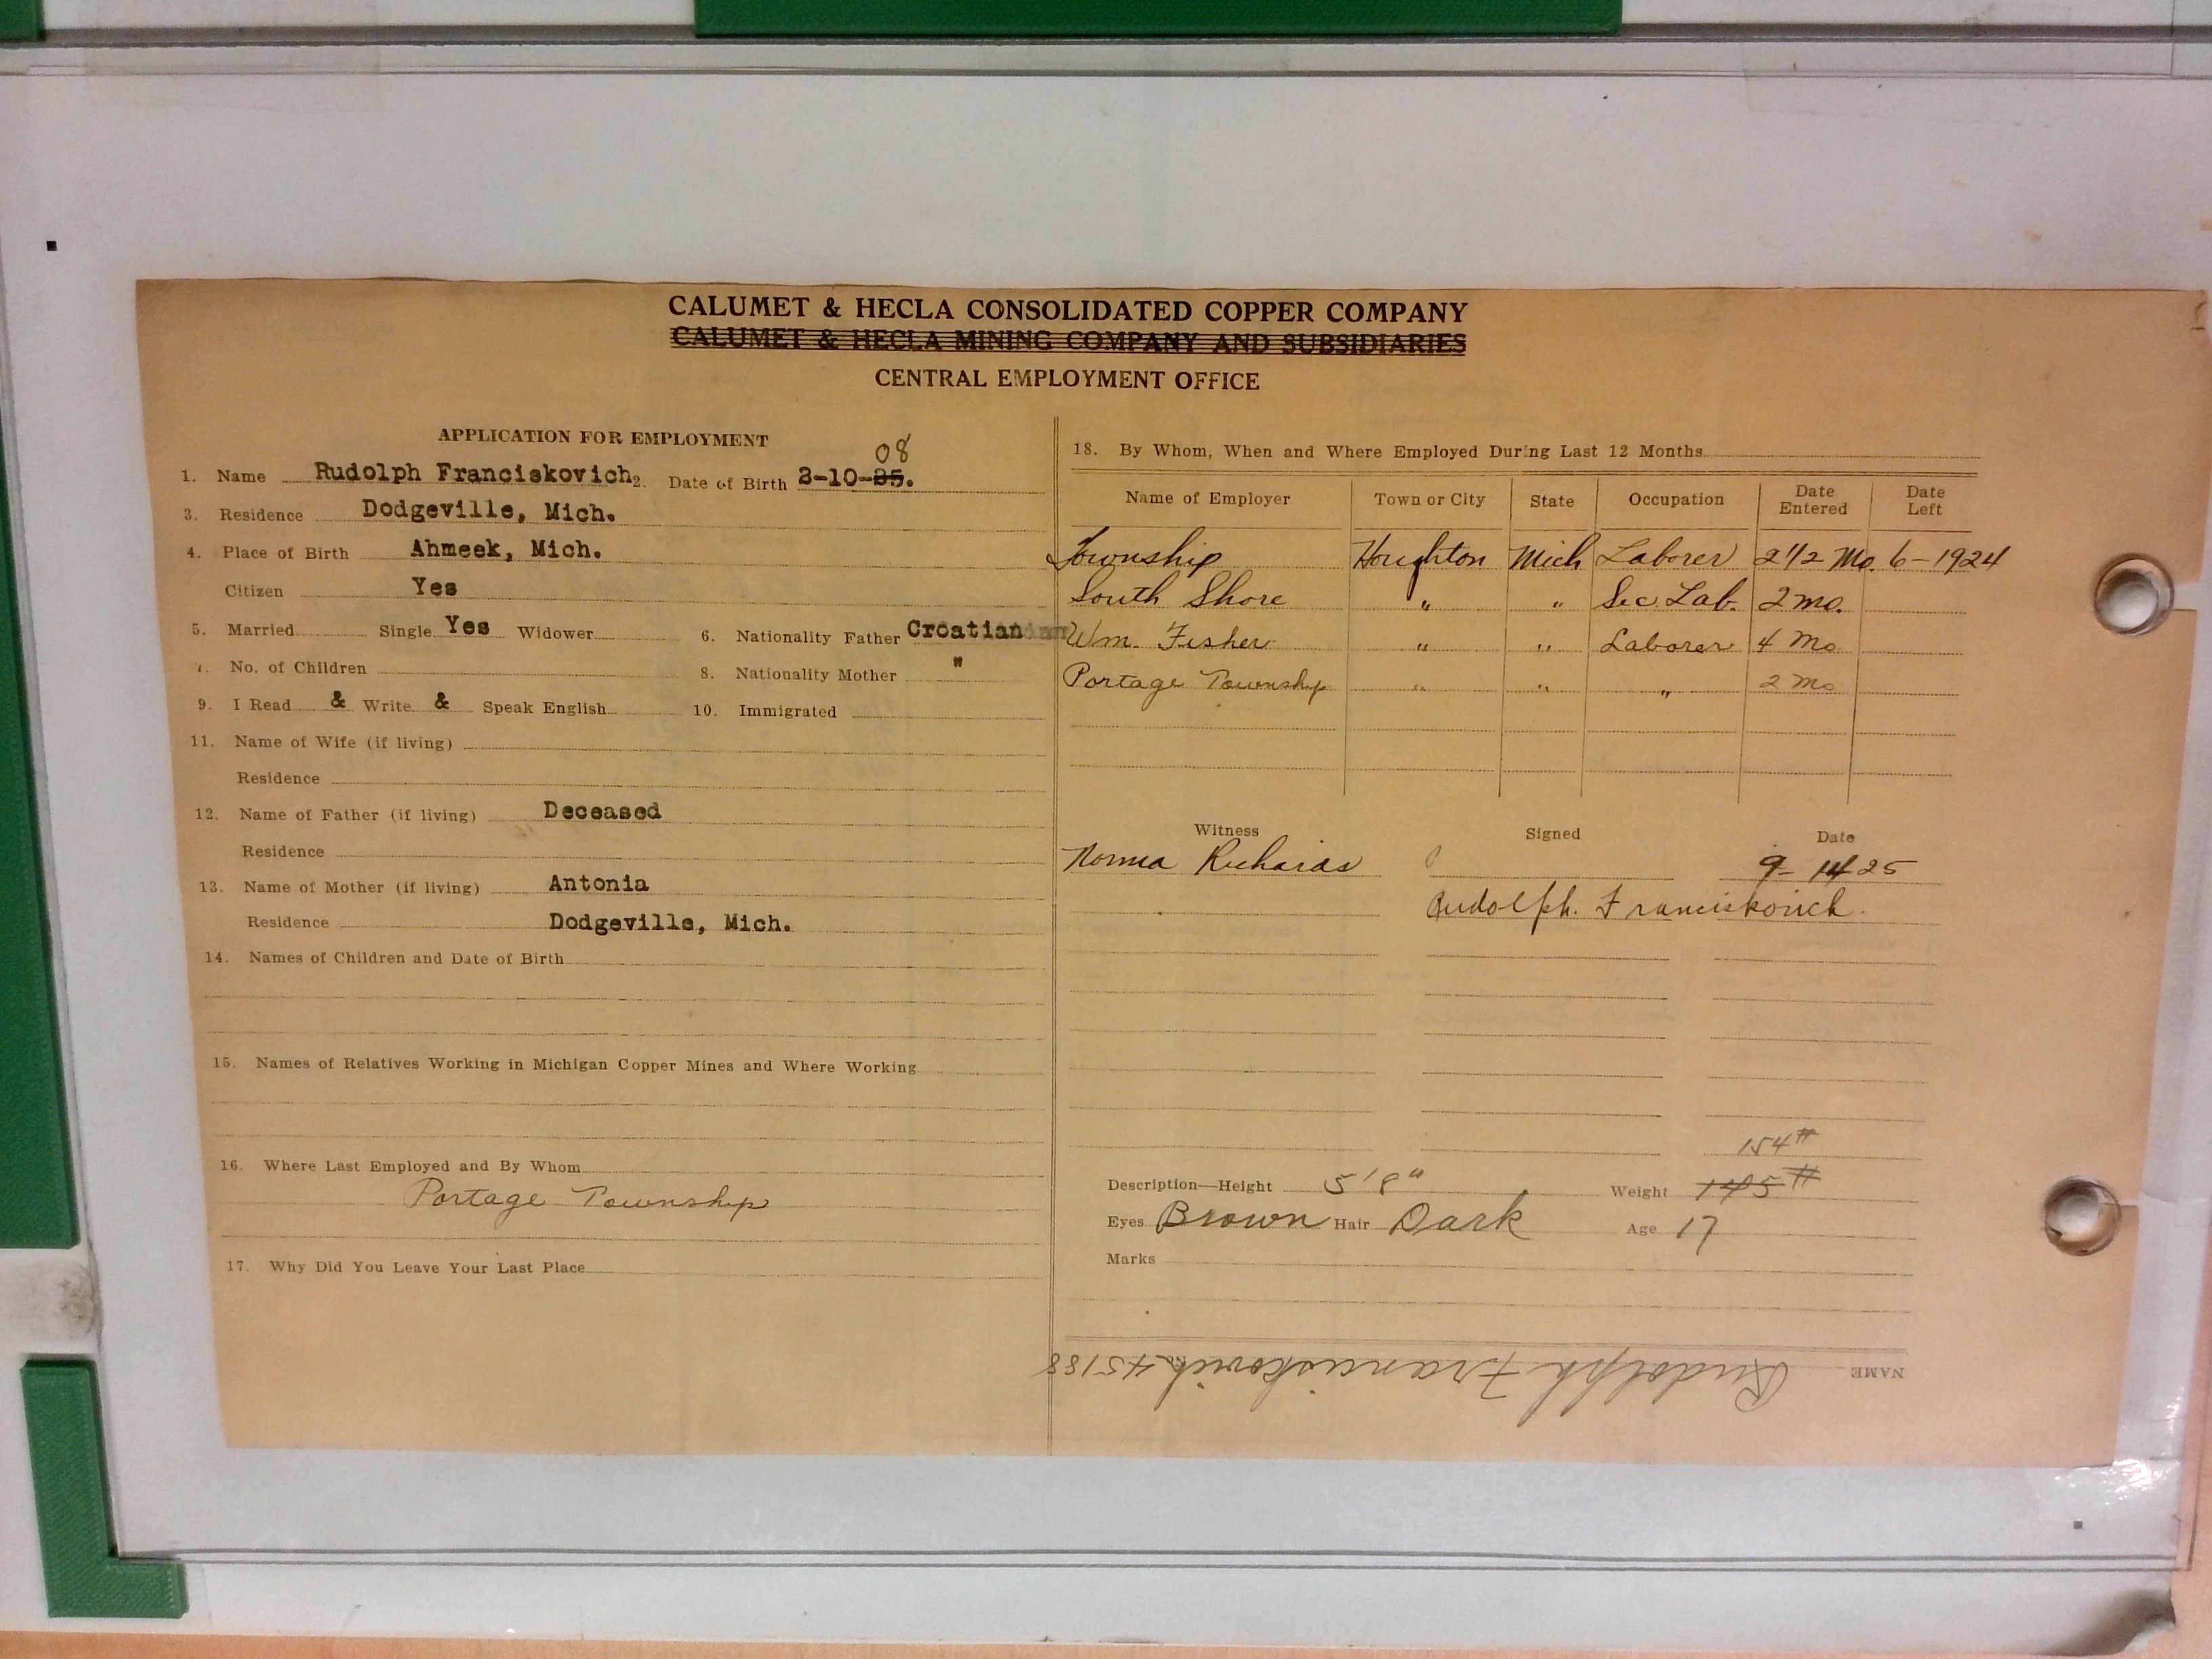 CALUMET & HECLA CONSOLIDATED COPPER COMPANY
CALUMET & HECLA MINING COMPANY AND SUBSIDIARIES
CENTRAL EMPLOYMENT OFFICE
APPLICATION FOR EMPLOYMENT
08
1. Name Rudolph Franciskovich 2. Date of Birth 3-10-25.
3. Residence Dodgeville, Mich.
4. Place of Birth Ahmeek, Mich.
Citizen Yes
5. Married Single Yes Widower 6. Nationality Father Croatian
7. No. of Children 8. Nationality Mother "
9. I Read & Write & Speak English 10. Immigrated
11. Name of Wife (if living)
Residence
12. Name of Father (if living) Deceased
Residence
13. Name of Mother (if living) Antonia
Residence Dodgeville, Mich.
14. Names of Children and Date of Birth
15. Names of Relatives Working in Michigan Copper Mines and Where Working
16. Where Last Employed and By Whom
Portage Township
17. Why Did You Leave Your Last Place
18. By Whom, When and Where Employed During Last 12 Months
Name of Employer Town or City State Occupation Date Entered Date Left
Township Houghton Mich Laborer 2 1/2 Mo. 6-1924
South Shore " " Sec. Lab. 2 mo.
Wm. Fisher " " Laborer 4 Mo
Portage Township " " " 2 Mo
Witness Signed Date
Norma Richards 9-14 25
Rudolph. Franciskovich.
154#
Description—Height 5'8" Weight 145#
Eyes Brown Hair Dark Age 17
Marks
NAME Rudolph Franciskovich No. 45188